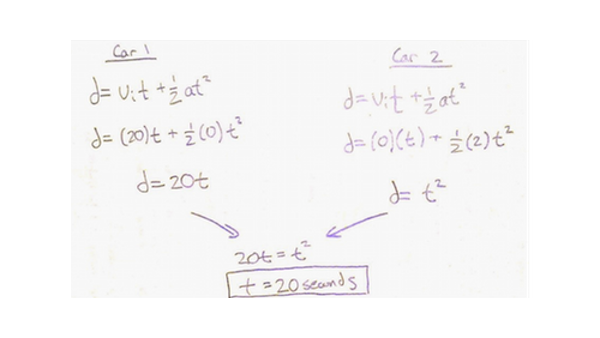 Car 1
d = vᵢt + ½at²
d = (20)t + ½(0)t²
d = 20t
Car 2
d = vᵢt + ½at²
d = (0)(t) + ½(2)t²
d = t²
20t = t²
t = 20 seconds